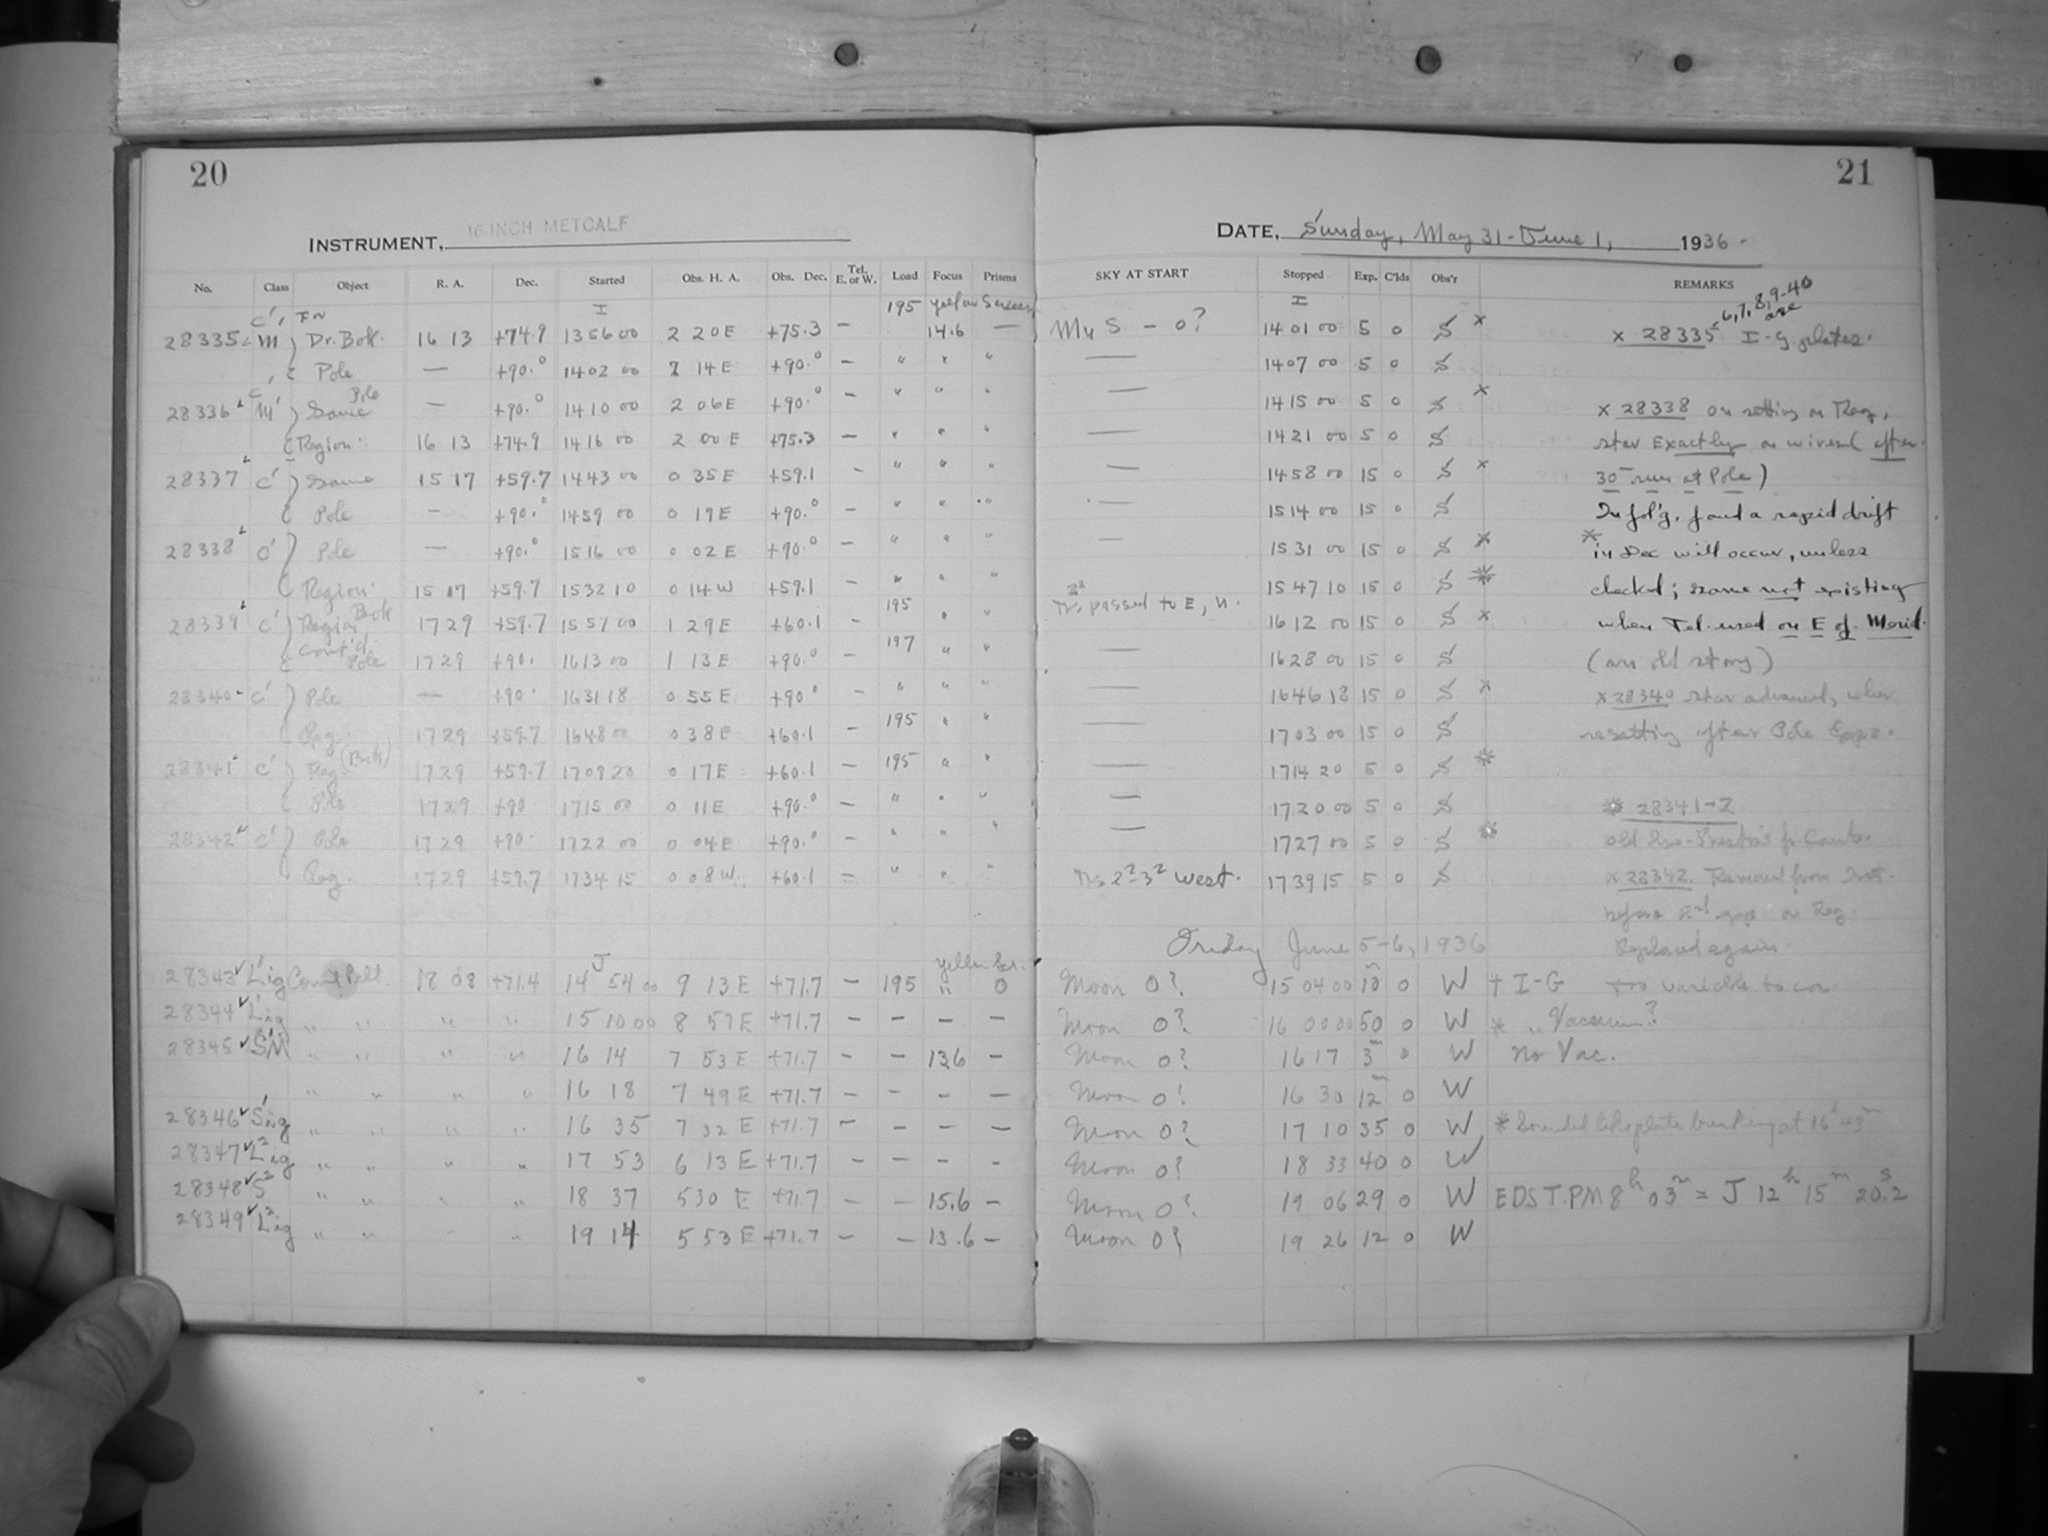 20
21
INSTRUMENT, 16-INCH METCALF
DATE, Sunday, May 31 - June 1, 1936.
No. Class Object R. A. Dec. Started Obs. H. A. Obs. Dec. Tel. E. or W. Load Focus Prisms SKY AT START Stopped Exp. C'lds Obs'r REMARKS
I 195 yellow Screen I 6,7,8,9-40 are
28335 C', M Dr. Bok. 16 13 +74.9 13 56 00 2 20 E +75.3 – 14.6 — – 0? 14 01 00 5 0 S × × 28335 I-G plates.
Pole — +90.° 14 02 00 14 E +90.° – " " " — 14 07 00 5 0 S
28336 C' M' Same Pole — +90.° 14 10 00 2 06 E +90.° – " " " — 14 15 00 5 0 S × × 28338 on setting on Reg.
Region 16 13 +74.9 14 16 00 2 00 E +75.3 – " " " — 14 21 00 5 0 S star Exactly on wires (after
28337 C' Same 15 17 +59.7 14 43 00 0 35 E +59.1 – " " " — 14 58 00 15 0 S × 30 run at Pole)
Pole – +90.° 14 59 00 0 19 E +90.° – " " " — 15 14 00 15 0 S In fol'g, found a rapid drift
28338 C' Pole — +90.° 15 16 00 0 02 E +90.° – " " " — 15 31 00 15 0 S × * in Dec will occur, unless
Region 15 17 +59.7 15 32 10 0 14 W +59.1 – " " " 15 47 10 15 0 S * checked; same not existing
28339 C' Region Bok 17 29 +59.7 15 57 00 1 29 E +60.1 – 195 " " passed to E, N. 16 12 00 15 0 S × when Tel. used on E of Merid.
Cont'd Pole 17 29 +90. 16 13 00 1 13 E +90.° – 197 " " — 16 28 00 15 0 S (an old story)
28340 C' Pole — +90 16 31 18 0 55 E +90° – " " " — 16 46 18 15 0 S × × 28340 star advanced, when
Reg. 17 29 +59.7 16 48 00 0 38 E +60.1 – 195 " " — 17 03 00 15 0 S resetting after Pole Expo.
28341 C' Reg. (Bok) 17 29 +59.7 17 09 20 0 17 E +60.1 – 195 " " — 17 14 20 5 0 S *
Pole 17 29 +90 17 15 00 0 11 E +90.° – " " " — 17 20 00 5 0 S * 28341-2
28342 C' Pole 17 29 +90 17 22 00 0 04 E +90.° – " " " — 17 27 00 5 0 S * old Iso-
Reg. 17 29 +59.7 17 34 15 0 08 W. +60.1 – " " " west. 17 39 15 5 0 S × 28342 Removed from
before 2nd on Reg.
Friday June 5-6, 1936 Replaced again.
J yellow Scr.
28343 L'ig Comet Pelt. 18 08 +71.4 14 54 00 9 13 E +71.7 – 195 " 0 Moon 0? 15 04 00 10m 0 W † I-G too variable to
28344 L'ig " " " " 15 10 00 8 57 E +71.7 – – – – Moon 0? 16 00 00 50 0 W * " Vacuum?
28345 S'M " " " " 16 14 7 53 E +71.7 – – 13.6 – Moon 0? 16 17 3m 0 W No Vac.
" " " " 16 18 7 49 E +71.7 – – – – Moon 0? 16 30 12m 0 W
28346 S'ig " " " " 16 35 7 32 E +71.7 – – – – Moon 0? 17 10 35 0 W * Sounded like plate breaking at 16h 43m
28347 L2ig " " " " 17 53 6 13 E +71.7 – – – – Moon 0? 18 33 40 0 W
28348 S2 " " " " 18 37 5 30 E +71.7 – – 15.6 – Moon 0? 19 06 29 0 W EDST. PM 8h 03m = J 12h 15m 20s.2
28349 L2ig " " " " 19 14 5 53 E +71.7 – – 13.6 – Moon 0? 19 26 12 0 W